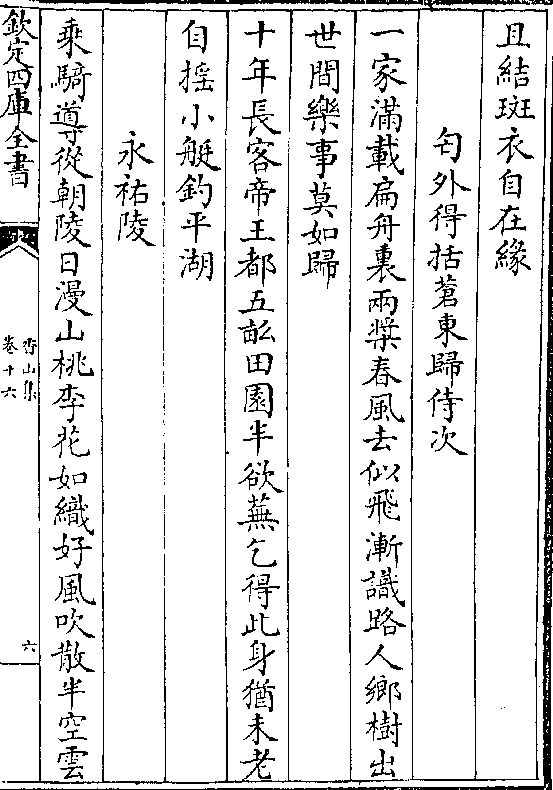 且結斑衣自在緣
匄外得括蒼東歸待次
一家滿載扁舟裏兩槳春風去似飛漸識路人鄉樹出
世間樂事莫如歸
十年長客帝王都五畝田園半欲蕪乞得此身猶未老
自揺小艇釣平湖
永祐陵
乘騎導從朝陵日漫山桃李花如織好風吹散半空雲
欽定四庫全書
香山集
卷十六
六